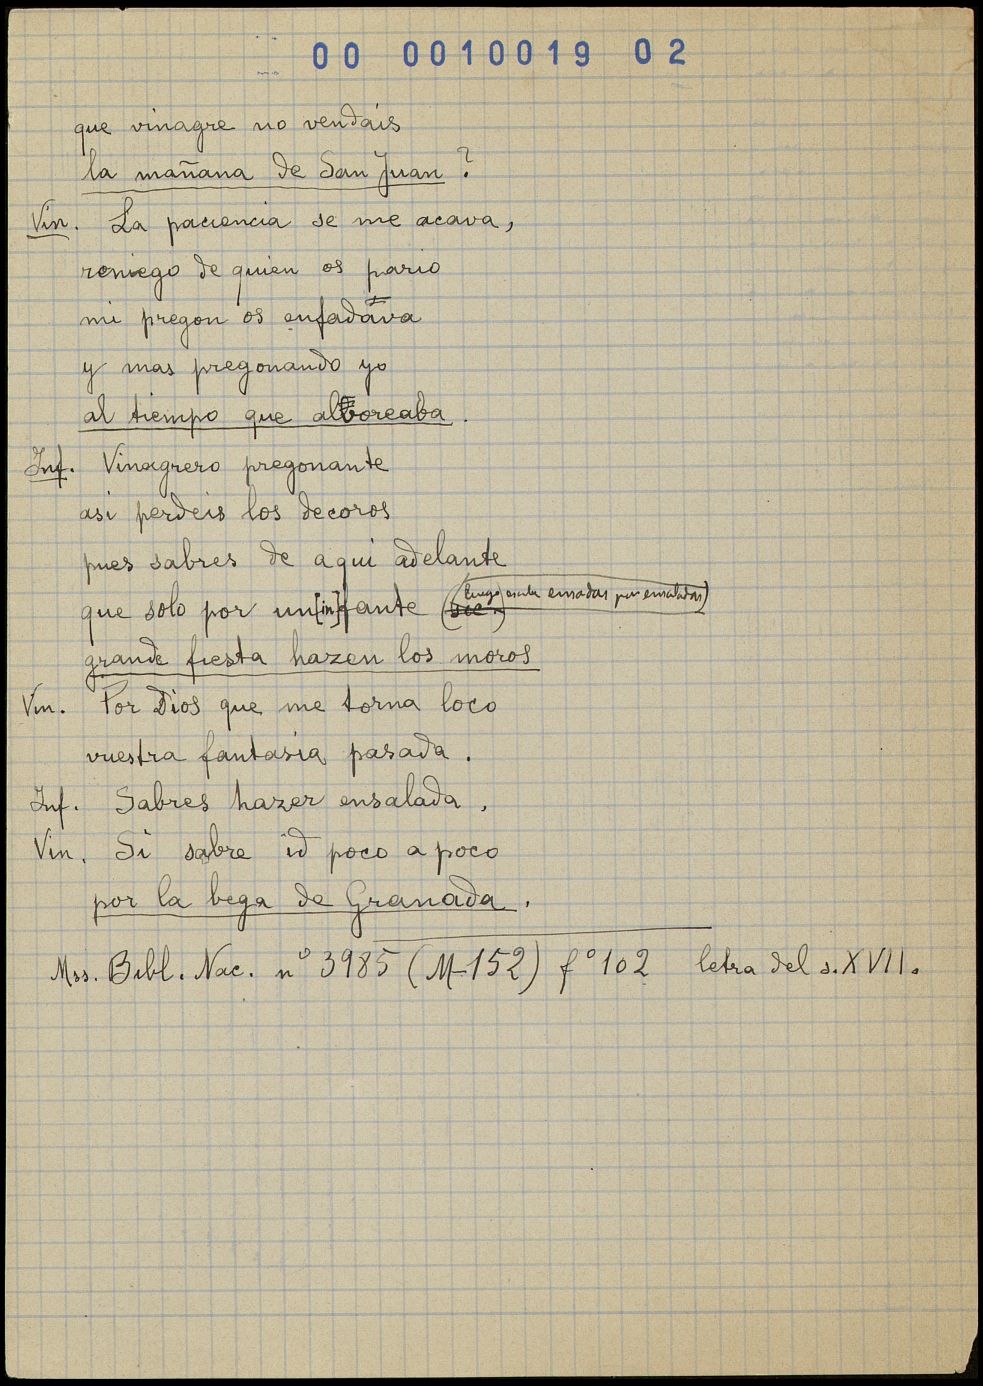 00 0010019 02
que vinagre no vendais
la mañana de San Juan?
Vin. La paciencia se me acava,
reniego de quien os pario
mi pregon os enfadava
y mas pregonando yo
al tiempo que alboreaba.
Inf. Vinagrero pregonante
asi perdeis los decoros
pues sabres de aqui adelante
que solo por un[in]fante (sic.) (luego escribe ensadas por ensaladas)
grande fiesta hazen los moros
Vin. Por Dios que me torna loco
vuestra fantasia pasada.
Inf. Sabres hazer ensalada,
Vin. Si sabre id poco a poco
por la bega de Granada.
Mss. Bibl. Nac. nº 3985 (M-152) fº 102 letra del s. XVII.